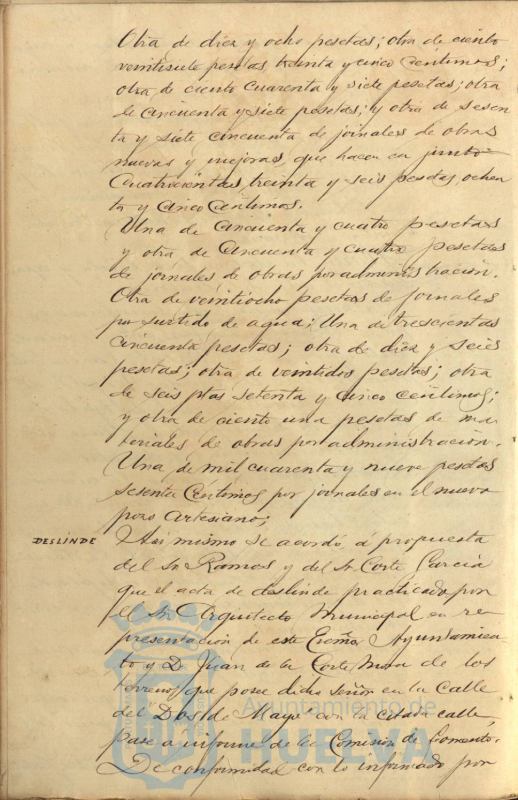 Otra de diez y ocho pesetas; otra de ciento
veintisiete pesetas treinta y cinco Centimos;
otra de ciento cuarenta y siete pesetas; otra
de cincuenta y siete pesetas; y otra de sesen
ta y siete cincuenta de jornales de obras
nuevas y mejoras, que hacen en junto
Cuatrocientas treinta y seis pesetas ochen
ta y Cinco Centimos.
Una de Cincuenta y cuatro pesetas
y otra de Cincuenta y cuatro pesetas
de jornales de obras por administracion.
Otra de veintiocho pesetas de jornales
por surtido de agua; Una de trescientas
cincuenta pesetas; otra de diez y seis
pesetas; otra de veintidos pesetas; otra
de seis ptas setenta y cinco centimos;
y otra de ciento una pesetas de ma
teriales de obras por administracion.
Una de mil cuarenta y nueve pesetas
sesenta Centimos por jornales en el nuevo
pozo Artesiano;
DESLINDE Asi mismo se acordó, á propuesta
del Sr. Ramos y del Sr. Corte Garcia
que el acta de deslinde practicado por
el Sr. Arquitecto Municipal en re
presentacion de este Excmo. Ayuntamien
to y D. Juan de la Corte Mora de los
terrenos que posee dicho señor en la Calle
del Dos de Mayo con la citada calle,
pase a informe de la Comision de Fomento.
De conformidad con lo informado por
Ayuntamiento de
HUELVA